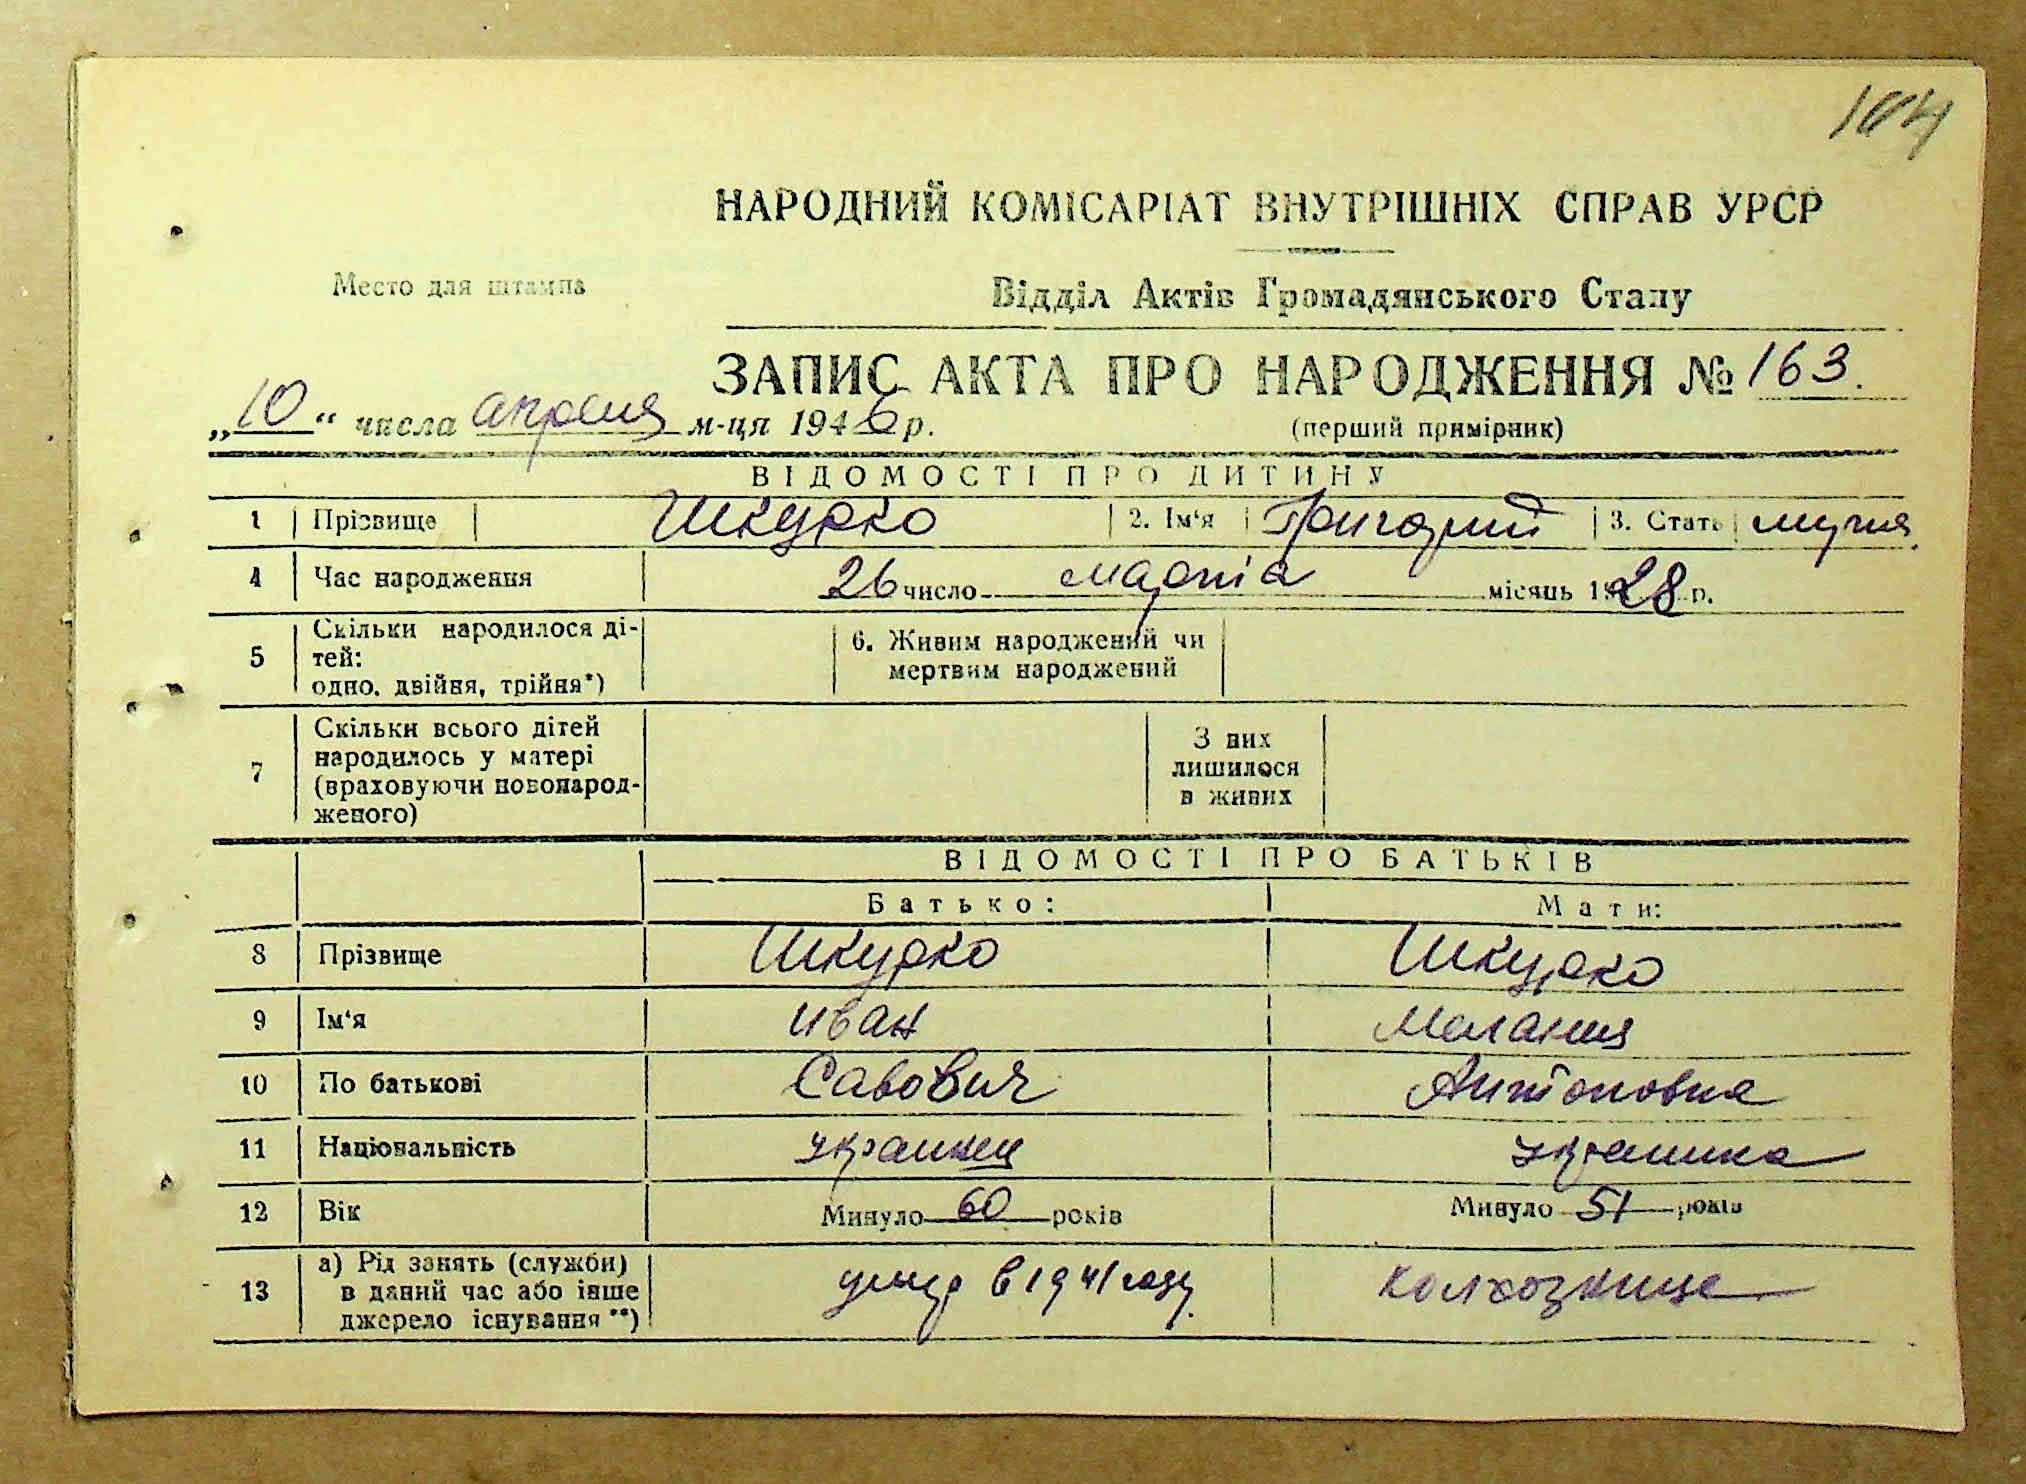 104
НАРОДНИЙ КОМІСАРІАТ ВНУТРІШНІХ СПРАВ УРСР
Место для штампа
Відділ Актів Громадянського Стану
ЗАПИС АКТА ПРО НАРОДЖЕННЯ № 163.
„10“ числа апреля м-ця 1946 р.
(перший примірник)
ВІДОМОСТІ ПРО ДИТИНУ
1 Прізвище Шкурко 2. Ім‘я Григорий 3. Стать мужск.
4 Час народження 26 число марта місяць 1928 р.
5 Скільки народилося ді-
тей:
одно, двійня, трійня*)
6. Живим народжений чи
мертвим народжений
7 Скільки всього дітей
народилось у матері
(враховуючи новонарод-
женого)
З них
лишилося
в живих
ВІДОМОСТІ ПРО БАТЬКІВ
Батько: Мати:
8 Прізвище Шкурко Шкурко
9 Ім‘я Иван Мелания
10 По батькові Савович Антоновна
11 Національність украинец украинка
12 Вік Минуло 60 років Минуло 51 років
13 а) Рід занять (служби)
в даний час або інше
джерело існування **)
умер в 1941 году. колхозница